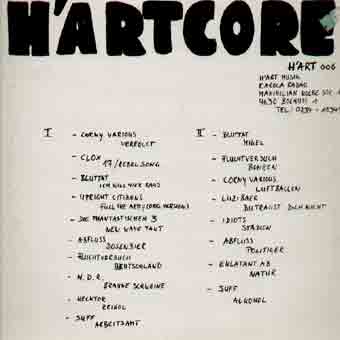 H'ARTCORE
H'ART 006
H'ART MUSIK
KAROLA RADAU
MAXIMILIAN KOLBE STR
4630 BOCHUM 1
TEL: 0234 -
I
- CORNY VARIOUS
VERFOLGT
- CLOX
17/REBELSONG
- BLUTTAT
ICH WILL NUR
- UPRIGHT CITIZENS
FULL THE ART (LONG VERSION)
- DIE PHANTASTISCHEN 3
WER WAVE TAUT
- ABFLUSS
DOSENBIER
- FLUCHTVERSUCH
DEUTSCHLAND
- N.D.R.
BRAUNE SCHWEINE
- HECKTOR
- SUFF
ARBEITSAMT
II
- BLUTTAT
NIGEL
- FLUCHTVERSUCH
BONZEN
- CORNY VARIOUS
LUFTBALLEN
- LUZIBÄER
BETRÜGST DICH NICHT
- IDIOTS
STADION
- ABFLUSS
POLITIKER
- EKLATANT AB
NATUR
- SUFF
ALKOHOL